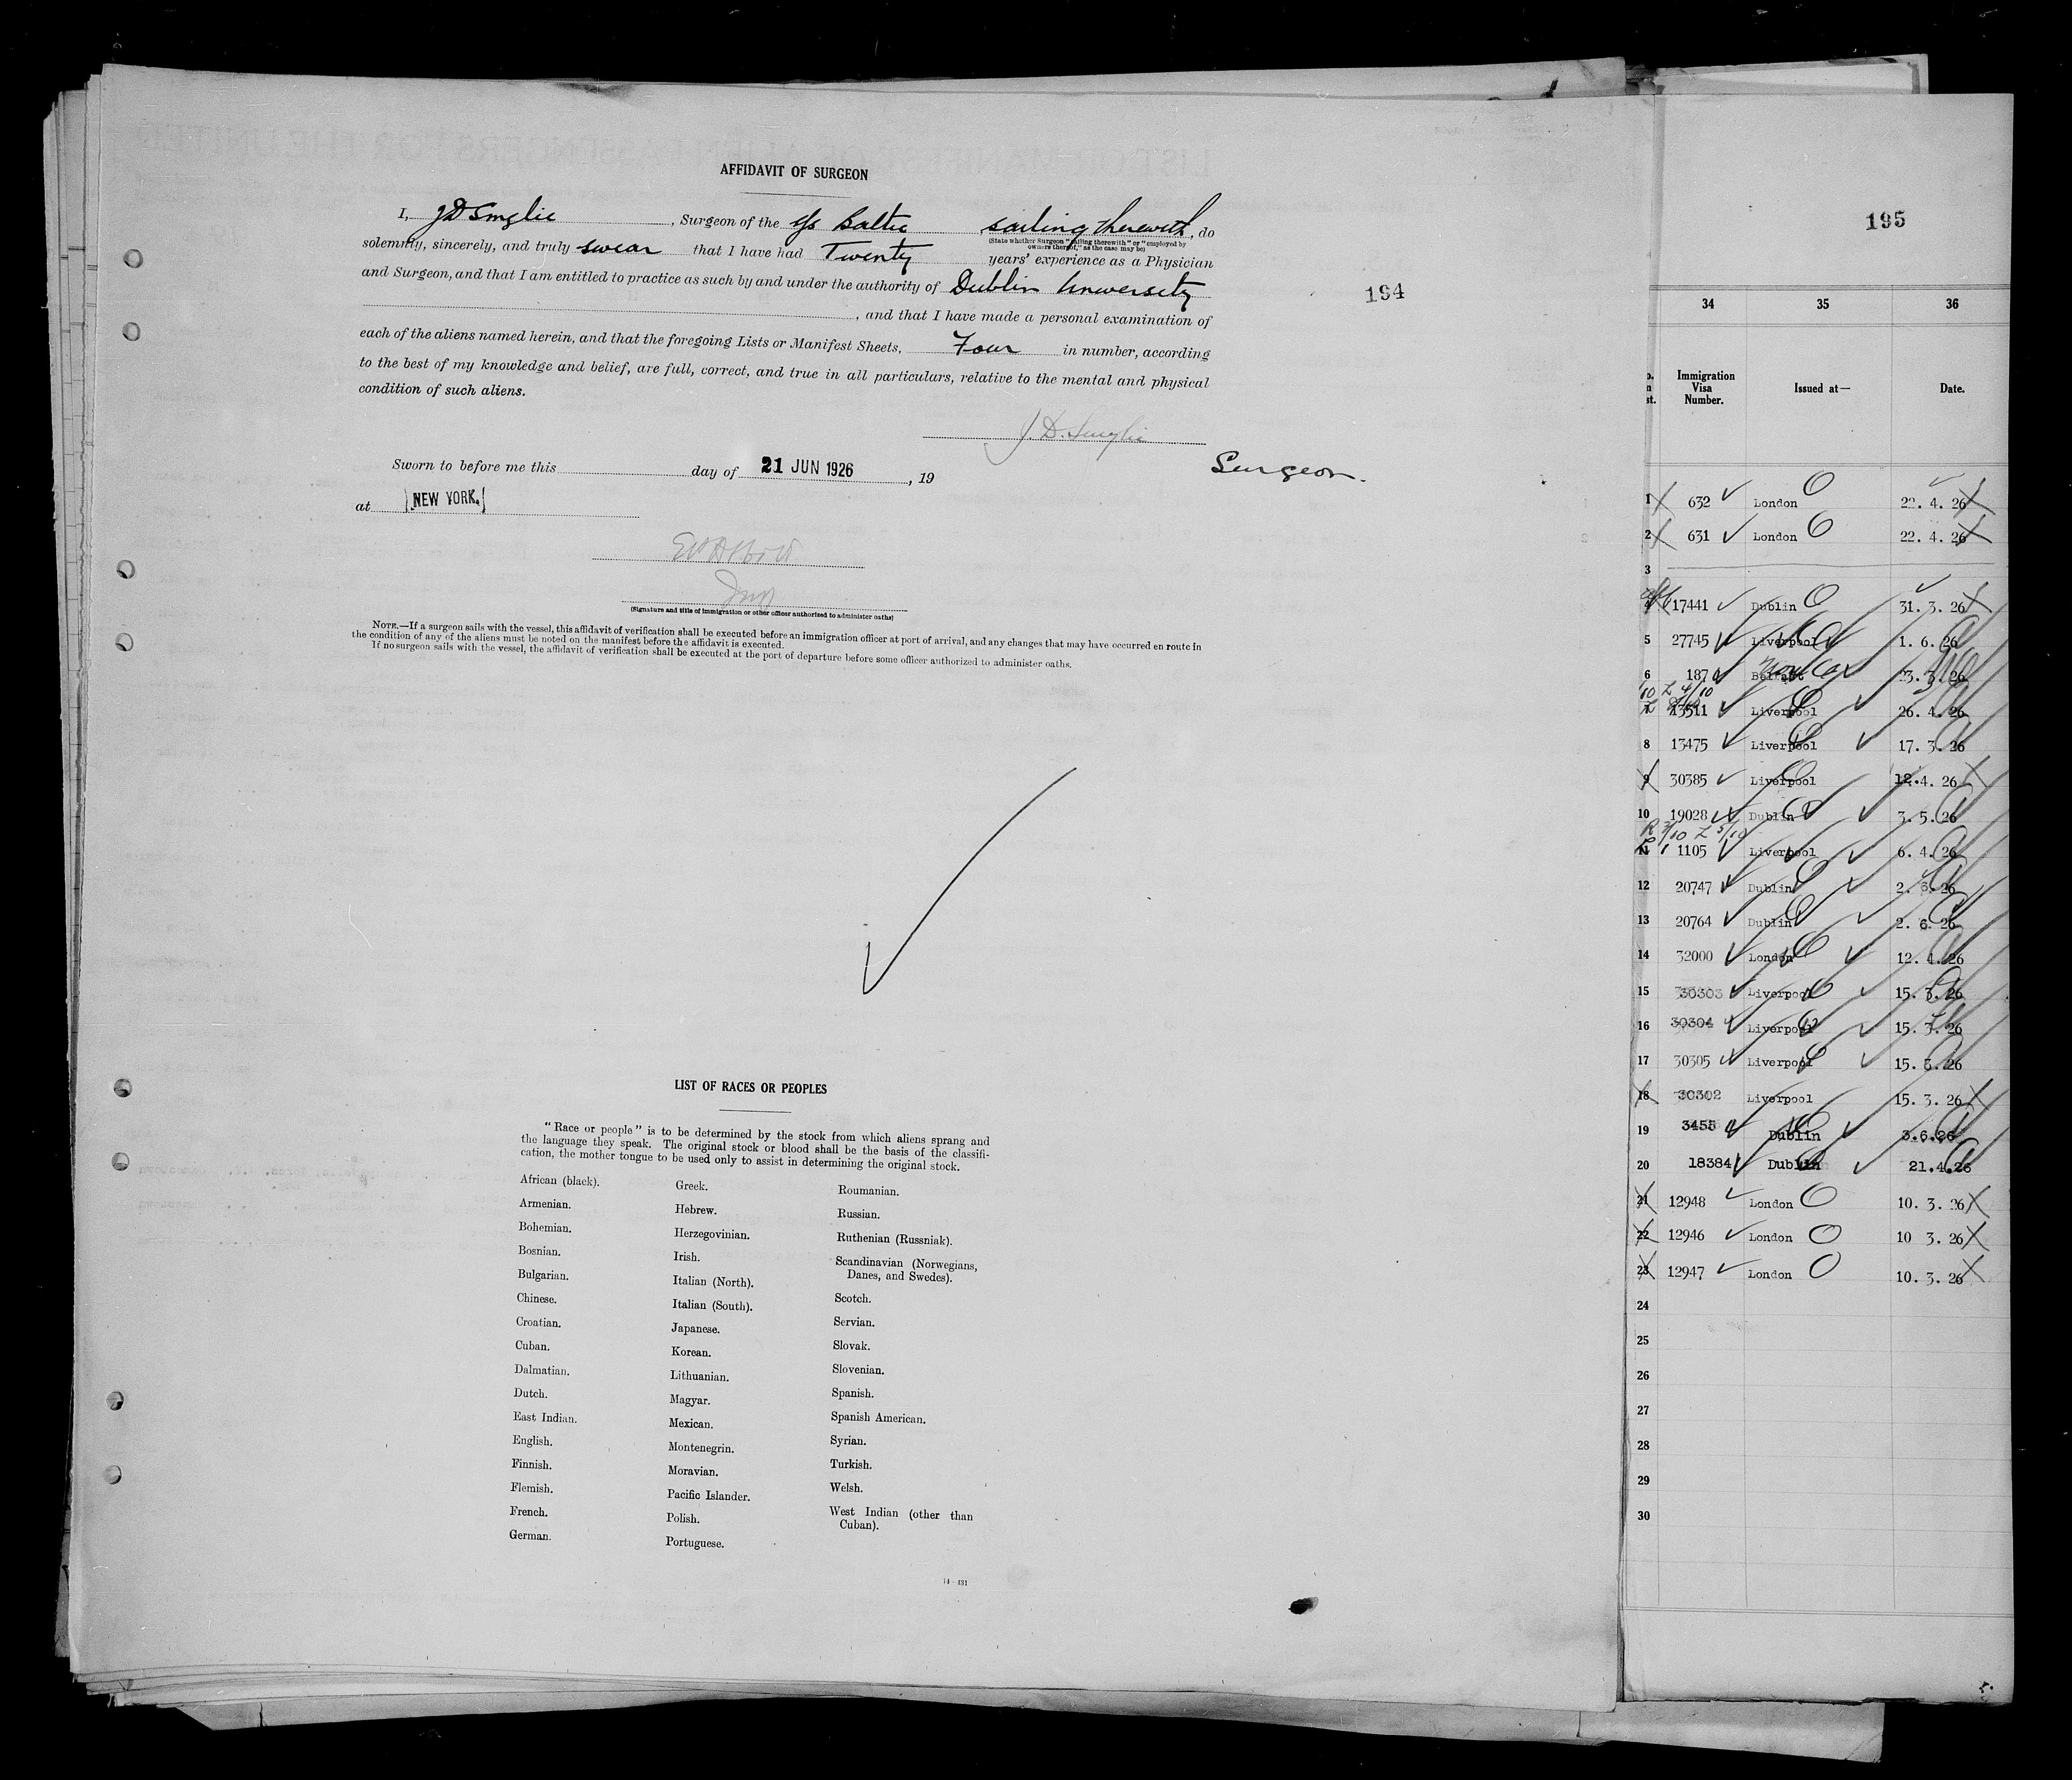 AFFIDAVIT OF SURGEON
I, J D Smylie, Surgeon of the s/s Baltic sailing therewith, do
(State whether Surgeon "sailing therewith" or "employed by
owners thereof," as the case may be)
solemnly, sincerely, and truly swear that I have had Twenty years' experience as a Physician
and Surgeon, and that I am entitled to practice as such by and under the authority of Dublin University
, and that I have made a personal examination of
each of the aliens named herein, and that the foregoing Lists or Manifest Sheets, Four in number, according
to the best of my knowledge and belief, are full, correct, and true in all particulars, relative to the mental and physical
condition of such aliens.
J. D. Smylie
Surgeon.
Sworn to before me this day of 21 JUN 1926, 19
at NEW YORK.
(Signature and title of immigration or other officer authorized to administer oaths)
NOTE.—If a surgeon sails with the vessel, this affidavit of verification shall be executed before an immigration officer at port of arrival, and any changes that may have occurred en route in
the condition of any of the aliens must be noted on the manifest before the affidavit is executed.
If no surgeon sails with the vessel, the affidavit of verification shall be executed at the port of departure before some officer authorized to administer oaths.
194
LIST OF RACES OR PEOPLES
"Race or people" is to be determined by the stock from which aliens sprang and
the language they speak. The original stock or blood shall be the basis of the classifi-
cation, the mother tongue to be used only to assist in determining the original stock.
African (black).
Armenian.
Bohemian.
Bosnian.
Bulgarian.
Chinese.
Croatian.
Cuban.
Dalmatian.
Dutch.
East Indian.
English.
Finnish.
Flemish.
French.
German.
Greek.
Hebrew.
Herzegovinian.
Irish.
Italian (North).
Italian (South).
Japanese.
Korean.
Lithuanian.
Magyar.
Mexican.
Montenegrin.
Moravian.
Pacific Islander.
Polish.
Portuguese.
Roumanian.
Russian.
Ruthenian (Russniak).
Scandinavian (Norwegians,
Danes, and Swedes).
Scotch.
Servian.
Slovak.
Slovenian.
Spanish.
Spanish American.
Syrian.
Turkish.
Welsh.
West Indian (other than
Cuban).
195
34 35 36
Immigration
Visa
Number.
Issued at—
Date.
1 632 London 22. 4. 26
2 631 London 22. 4. 26
3
17441 Dublin 31. 3. 26
5 27745 Liverpool 1. 6. 26
6 187 Belfast 23. 3. 26
13511 Liverpool 26. 4. 26
8 13475 Liverpool 17. 3. 26
9 30385 Liverpool 12. 4. 26
10 19028 Dublin 3. 5. 26
11 1105 Liverpool 6. 4. 26
12 20747 Dublin 2. 6. 26
13 20764 Dublin 2. 6. 26
14 32000 London 12. 4. 26
15 30303 Liverpool 15. 3. 26
16 30304 Liverpool 15. 3. 26
17 30305 Liverpool 15. 3. 26
18 30302 Liverpool 15. 3. 26
19 3455 Dublin 3.6.26
20 18384 Dublin 21.4.26
21 12948 London 10. 3. 26
22 12946 London 10 3. 26
23 12947 London 10. 3. 26
24
25
26
27
28
29
30